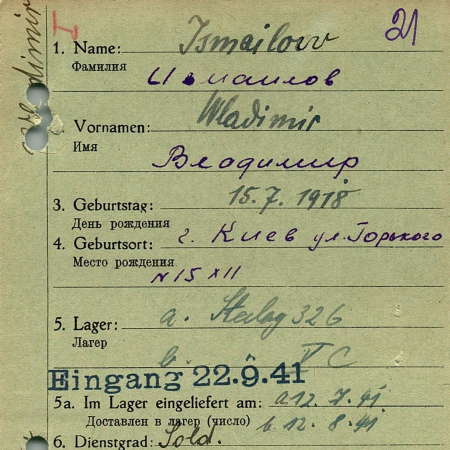 I
21
1. Name: Ismailow
Фамилия Измаилов
2. Vornamen: Wladimir
Имя Владимир
3. Geburtstag: 15.7.1918
День рождения
4. Geburtsort: г. Киев ул. Горького
Место рождения N 15 XII
5. Lager: a. Stalag 326
Лагерь b. V C
Eingang 22.9.41
5a. Im Lager eingeliefert am: a 12.7.41
Доставлен в лагер (число) b. 12.8.41
6. Dienstgrad: Sold.